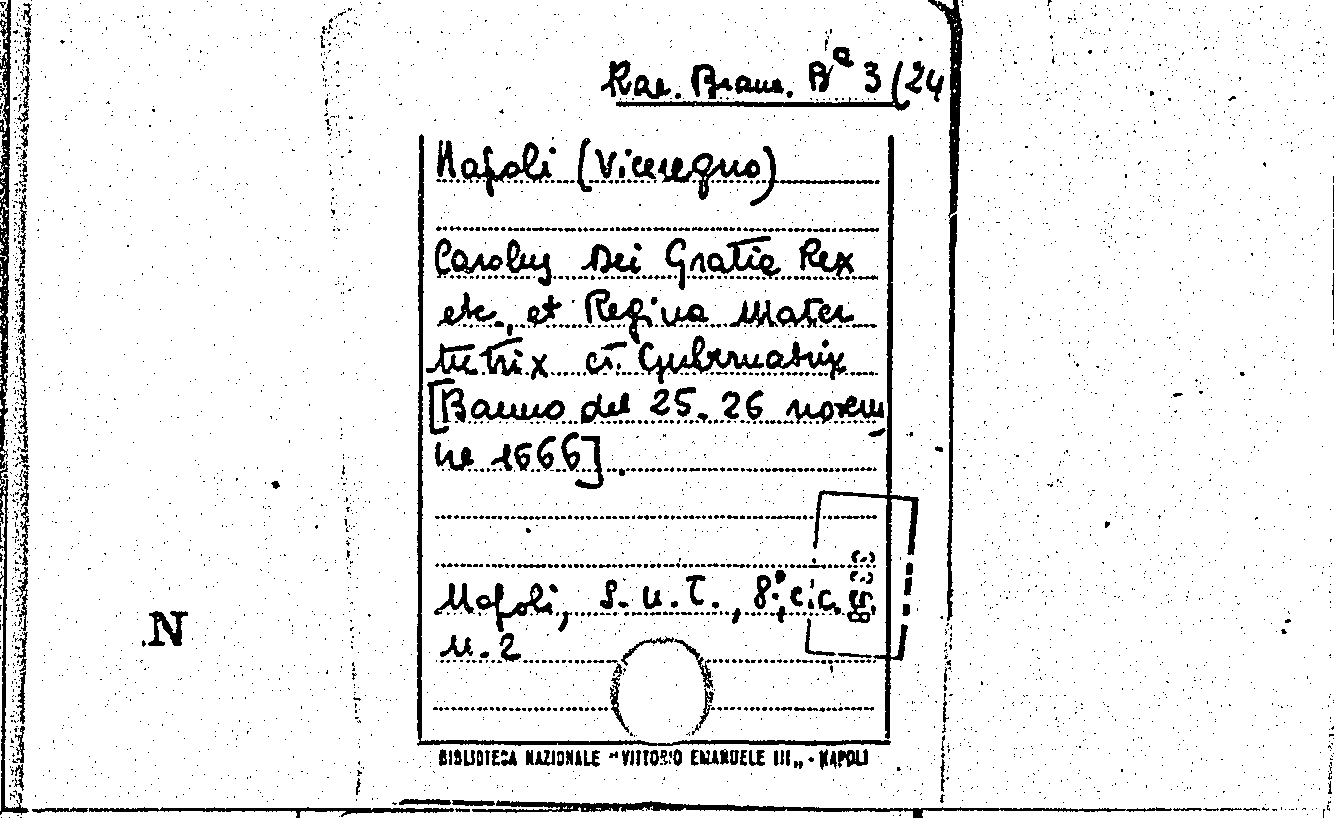 Rac. Branc. Bª 3 (24
Napoli (Viceregno)
Carolus Dei Gratia Rex
etc., et Regina Mater
tutrix et. Gubernatrix
[Banno del 25. 26 novem
bre 1666].
Napoli, S. u. T., 8°, c.
n. 2
N
BIBLIOTECA NAZIONALE "VITTORIO EMANUELE III„ - NAPOLI